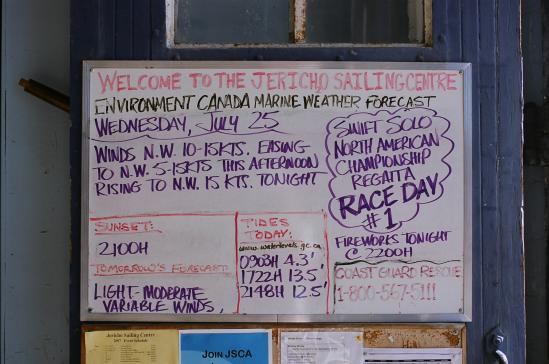 WELCOME TO THE JERICHO SAILING CENTRE
ENVIRONMENT CANADA MARINE WEATHER FORECAST
WEDNESDAY, JULY 25
WINDS N.W. 10-15KTS. EASING
TO N.W. 5-15KTS THIS AFTERNOON
RISING TO N.W. 15 KTS. TONIGHT
SWIFT SOLO
NORTH AMERICAN
CHAMPIONSHIP
REGATTA
RACE DAY
#1
FIREWORKS TONIGHT
@ 2200H
COAST GUARD RESCUE
1-800-567-5111
SUNSET:
2100H
TOMORROW'S FORECAST
LIGHT-MODERATE
VARIABLE WINDS,
TIDES
TODAY:
www.waterlevels.gc.ca
0903H 4.3'
1722H 13.5'
2148H 12.5'
Jericho Sailing Centre
2007 Event Schedule
JOIN JSCA